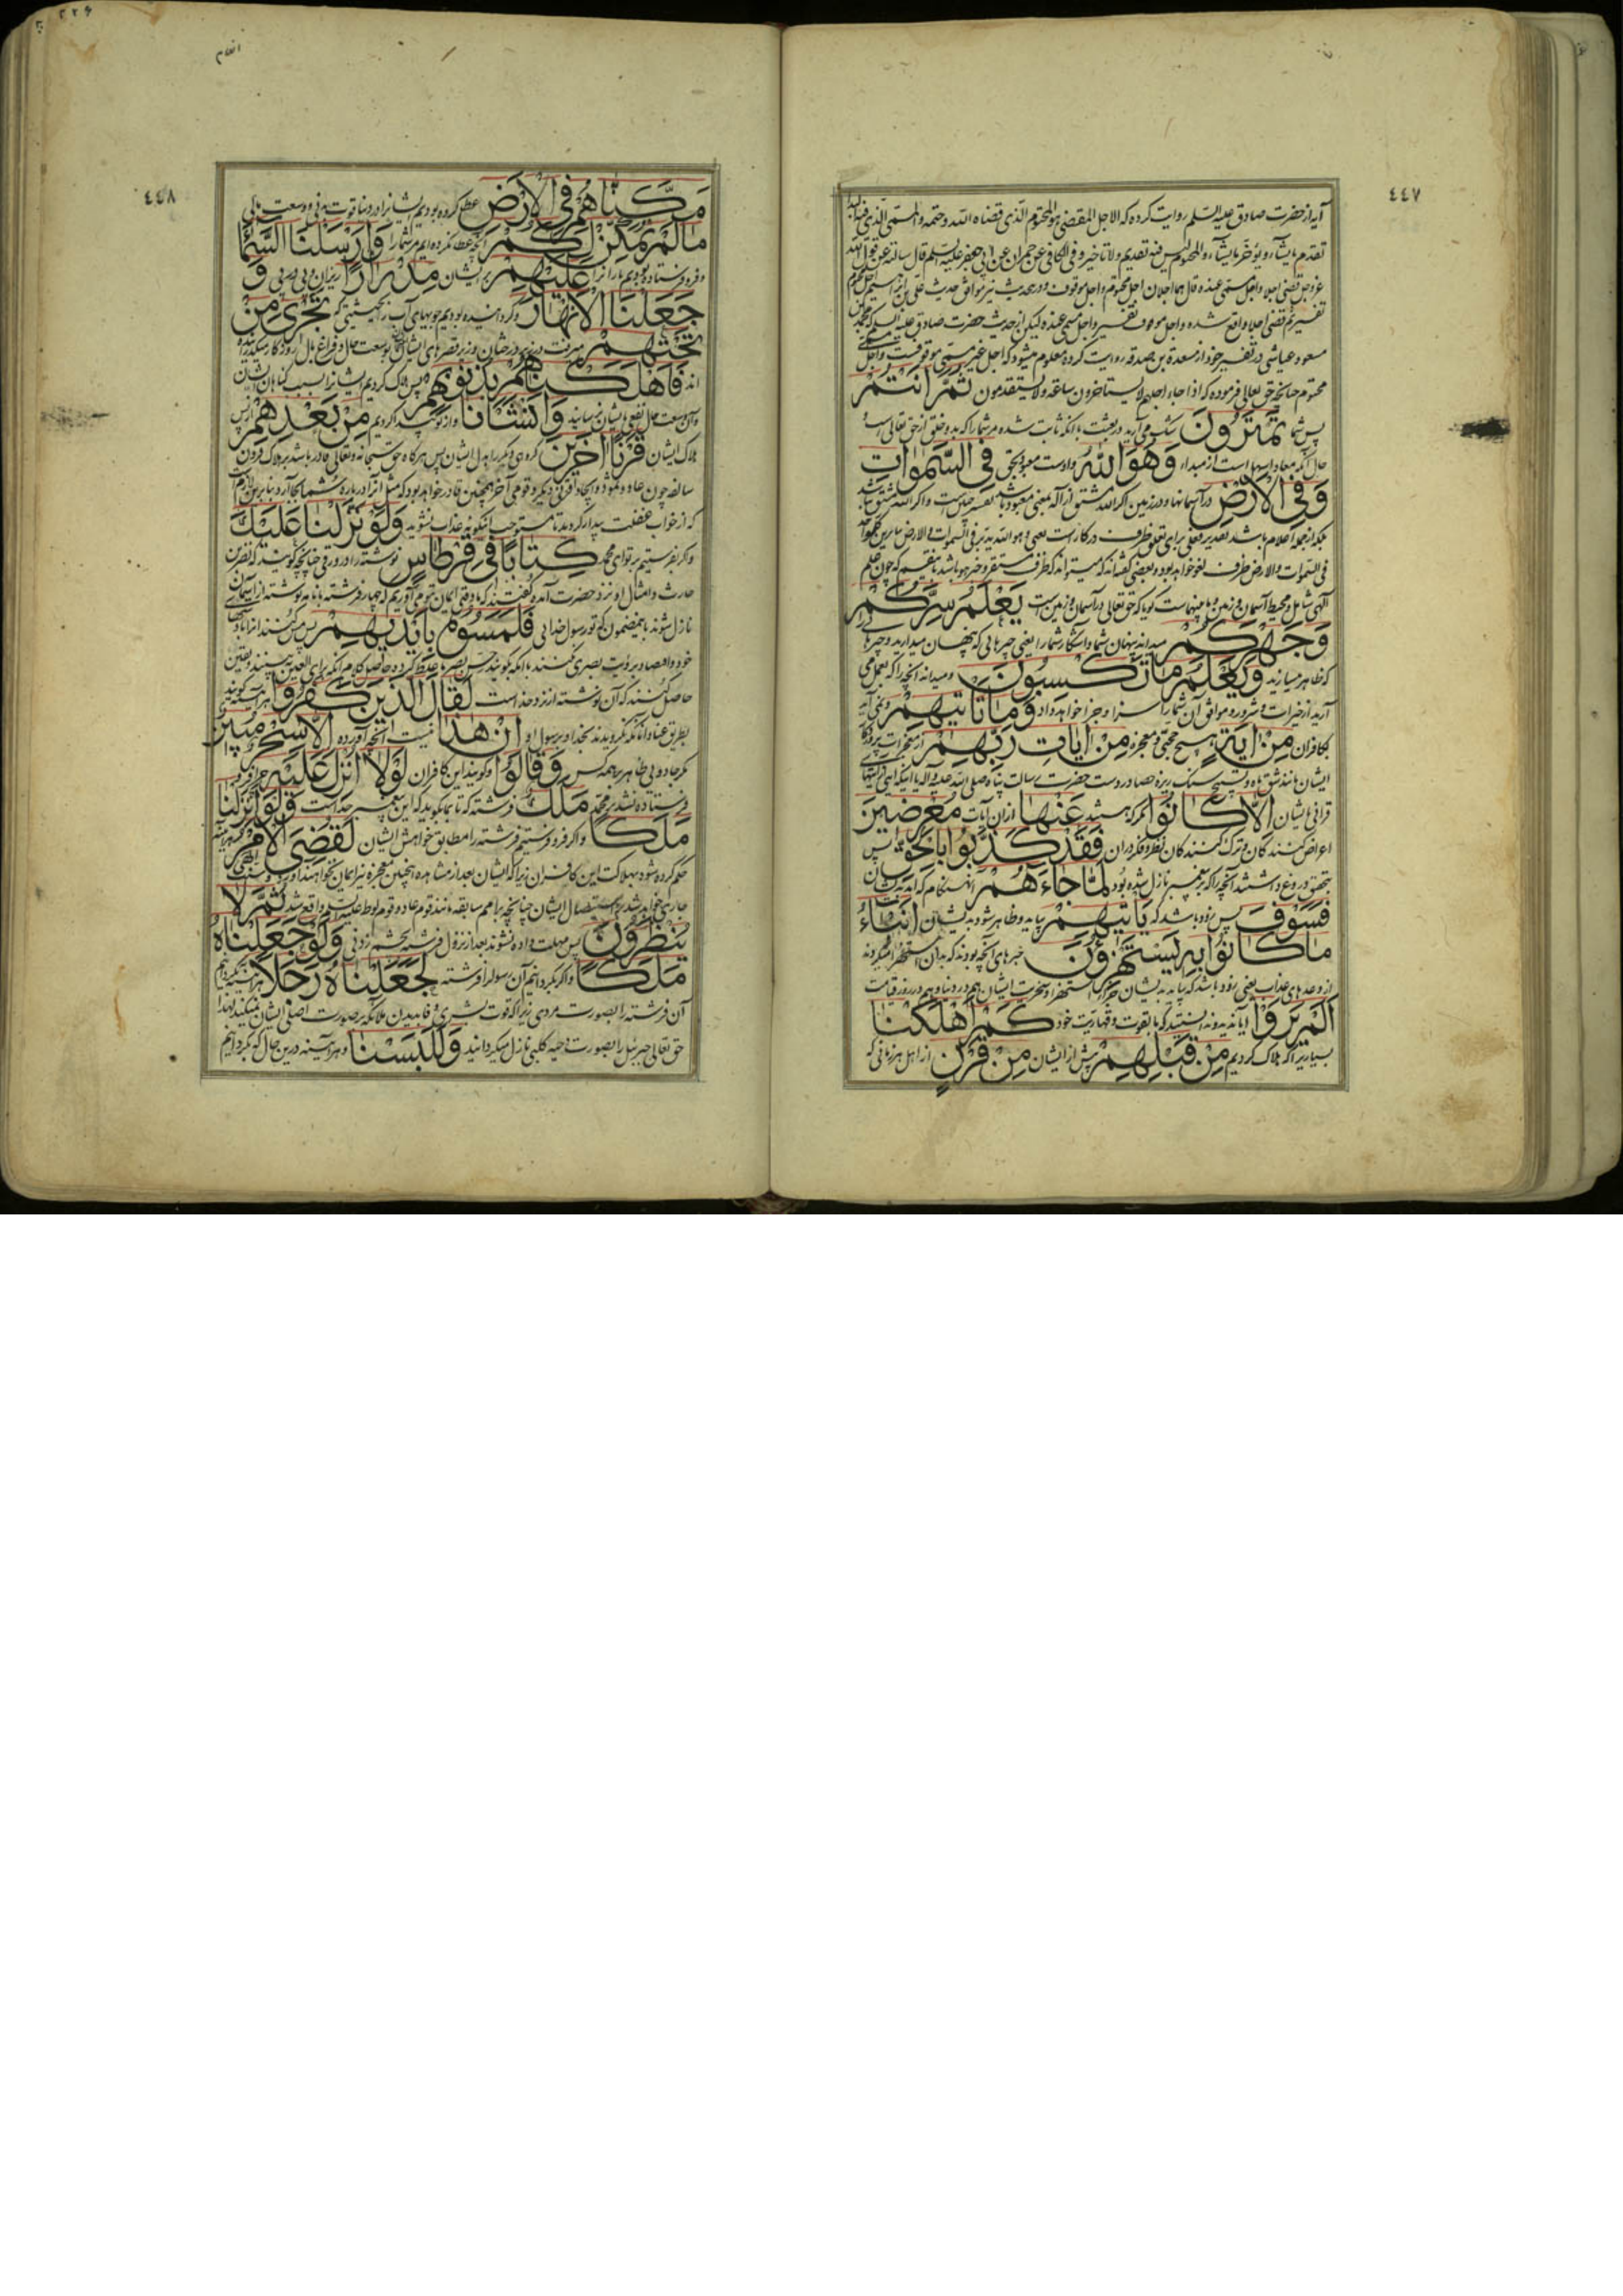 ٤٤٧
آیه از حضرت صادق علیه السلم روایت کرده که الاجل المقضی هو المحتوم الذی قضاه الله و حتمه و المسمی الذی فیه البدا
تقدم ما یشاء و یؤخر ما یشاء و المحتوم لیس فیه تقدیم و لا تاخیر و فی الکافی عن حمران عن ابی جعفر علیه السلم قال سالته عن قول الله
عز و جل قضی اجلا و اجل مسمی عنده قال هما اجلان اجل محتوم و اجل موقوف
مسعود عیاشی در تفسیر خود از مسعدة بن صدقه روایت کرده معلوم میشود که اجل غیر مسمی موقوفست و اجل
محتوم چنانچه حق تعالی فرموده که اذا جاء اجلهم لا یستاخرون ساعة و لا یستقدمون ثُمَّ اَنْتُمْ
پس شما تَمْتَرُونَ شک می آرید در بعثت با آنکه ثابت شده مر شما را که بدو خلق از حق تعالی است
وَهُوَ اللّٰهُ و اوست معبود بحق فِی السَّمٰوَاتِ
وَفِی الْاَرْضِ در آسمانها و در زمین اگر الله مشتق از اله بمعنی معبود باشد
بلکه از جمله اعلام باشد تقدیر فعلی برای تعلق ظرف در کار است یعنی و هو الله یدبر فی السموات و الارض
فی السموات و الارض ظرف لغو خواهد بود و بعضی گفته اند که میتواند که ظرف مستقر و خبر هو باشد
الهی شامل و محیط آسمان و زمین و ما بینهماست گویا که حق تعالی در آسمان و زمین است یَعْلَمُ سِرَّکُمْ
وَجَهْرَکُمْ میداند پنهان شما و آشکار شما را یعنی چیزهائی که پنهان میدارید و چیزها
که ظاهر میسازید وَیَعْلَمُ مَا تَکْسِبُونَ و میداند آنچه را که بعمل می
آرید از خیرات و شرور و موافق آن شما را سزا و جزا خواهد داد وَمَا تَاْتِیهِمْ و نمی آید
بکافران مِنْ اٰیَةٍ هیچ حجتی و معجزه مِنْ اٰیَاتِ رَبِّهِمْ از معجزات پروردگار
ایشان مانند شق ماه و تسبیح سنک ریزه حصا در دست حضرت رسالت پناه صلی الله علیه و اله
قرآنی بایشان اِلَّا کَانُوا مگر که باشند عَنْهَا از آن آیات مُعْرِضِینَ
اعراض کنندکان و ترک کنندکان نظر و فکر در آن فَقَدْ کَذَّبُوا بِالْحَقِّ پس
بتحقیق دروغ داشتند آنچه را که بر پیغمبر نازل شده بود لَمَّا جَاءَهُمْ آنهنگام که آمد بدیشان
فَسَوْفَ پس زود باشد که یَاْتِیهِمْ بیاید و ظاهر شود بدیشان اَنْبَاءُ
مَا کَانُوا بِهِ یَسْتَهْزِؤُنَ خبرهای آنچه بودند که بدان استهزا میکردند
از وعدهای عذاب یعنی زود باشد که بیاید بدیشان جزای استهزا و سخریت ایشان هم در دنیا و هم در روز قیامت
اَلَمْ یَرَوْا آیا ندیدند و ندانستند که ما بقوت و قهاریت خود کَمْ اَهْلَکْنَا
بسیاری را که هلاک کردیم مِنْ قَبْلِهِمْ پیش از ایشان مِنْ قَرْنٍ از اهل هر زمانی که
انعام
٤٤٨
مَکَّنَّاهُمْ فِی الْاَرْضِ عطا کرده بودیم ایشانرا در دنیا قوت بدنی و وسعت مالی
مَا لَمْ نُمَکِّنْ لَکُمْ آنچه عطا نکرده ایم مر شما را وَاَرْسَلْنَا السَّمَاءَ
و فرو فرستاده بودیم بارانرا عَلَیْهِمْ بر ایشان مِدْرَارًا ریزان و پی در پی وَ
جَعَلْنَا الْاَنْهَارَ و گردانیده بودیم جویهای آب را بحیثیتی که تَجْرِی مِنْ
تَحْتِهِمْ میرفت در زیر درختان و زیر قصرهای ایشان
اند فَاَهْلَکْنَاهُمْ بِذُنُوبِهِمْ پس هلاک کردیم ایشانرا بسبب گناهان ایشان
و آن وسعت حال نفعی بایشان نرسانید وَاَنْشَاْنَا و از نو پیدا کردیم مِنْ بَعْدِهِمْ از پس
هلاک ایشان قَرْنًا اٰخَرِینَ گروهی دیگر را بدل ایشان پس هرگاه حق سبحانه و تعالی قادر باشد بر هلاک قرون
سالفه چون عاد و ثمود و ایجاد قرنی دیگر و قومی آخر همچنین قادر خواهد بود که مثل آنرا در باره شما بجا آرد
که از خواب غفلت بیدار گردید تا مستوجب اینگونه عذاب نشوید وَلَوْ نَزَّلْنَا عَلَیْکَ
و اگر بفرستیم بر تو ای محمد کِتَابًا فِی قِرْطَاسٍ نوشته را در ورقی چنانچه گویند که نضر بن
حارث و امثال او نزد حضرت آمده گفتند که ما وقتی ایمان بتو می آوریم که چهار فرشته با نامه نوشته از آسمان
نازل شوند باینمضمون که تو رسول خدائی فَلَمَسُوهُ بِاَیْدِیهِمْ پس مس کنند آنرا بدستهای
حاصل کنند که آن نوشته از نزد خداست لَقَالَ الَّذِینَ کَفَرُوا هر آینه گویند
بطریق عناد آنانکه نگرویدند بخدا و برسول او اِنْ هٰذَا نیست آنچه آورده اِلَّا سِحْرٌ مُبِینٌ
مگر جادوئی ظاهر بر همه کس وَقَالُوا و گویند این کافران لَوْلَا اُنْزِلَ عَلَیْهِ چرا فرو
فرستاده نشد بر محمد مَلَکٌ فرشته که تا بما بگوید که این پیغمبر خداست وَلَوْ اَنْزَلْنَا
مَلَکًا و اگر فرو فرستیم فرشته را مطابق خواهش ایشان لَقُضِیَ الْاَمْرُ هر آینه
حکم کرده شود بهلاکت این کافران زیرا که ایشان بعد از مشاهده اینچنین معجزه نیز ایمان نخواهند آورد
جاری خواهد شد باستیصال ایشان چنانچه بر امم سابقه مانند قوم عاد و قوم لوط علیه السلم واقع شد ثُمَّ لَا
یُنْظَرُونَ پس مهلت داده نشوند بعد از نزول فرشته بچشم زدنی وَلَوْ جَعَلْنَاهُ
مَلَکًا و اگر بگردانیم آن رسول را فرشته لَجَعَلْنَاهُ رَجُلًا هر آینه بگردانیم
آن فرشته را بصورت مردی زیرا که قوت بشری وفا بدیدن ملائکه بر صورت اصلی ایشان نمیکند لهذا
حق تعالی جبرئیل را بصورت دحیه کلبی نازل میگردانید وَلَلَبَسْنَا و هر آینه درین حال که بگردانیم